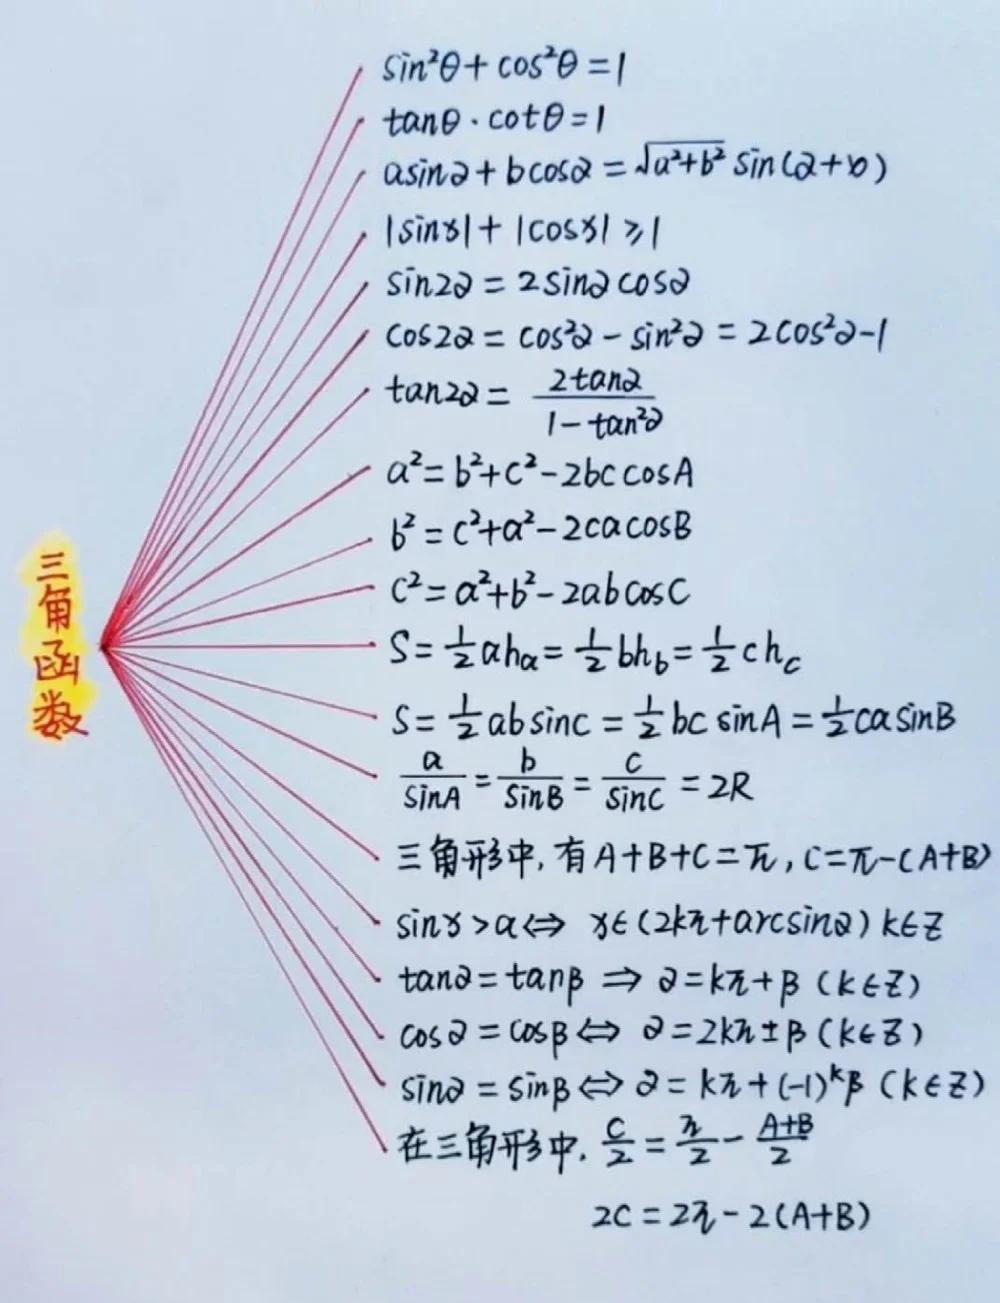 三角函数
sin²θ + cos²θ = 1
tanθ · cotθ = 1
asin∂ + bcos∂ = √(a²+b²) sin(∂+φ)
|sinx| + |cosx| ≥ 1
sin2∂ = 2sin∂cos∂
cos2∂ = cos²∂ - sin²∂ = 2cos²∂-1
tan2∂ = 2tan∂ / (1-tan²∂)
a² = b²+c²-2bccosA
b² = c²+a²-2cacosB
c² = a²+b²-2abcosC
S = ½ahₐ = ½bh_b = ½ch_c
S = ½absinc = ½bcsinA = ½casinB
a/sinA = b/sinB = c/sinC = 2R
三角形中,有A+B+C=π,C=π-(A+B)
sinx>a⇔ x∈(2kπ+arcsin∂) k∈Z
tan∂=tanβ ⇒ ∂=kπ+β (k∈Z)
cos∂=cosβ⇔ ∂=2kπ±β (k∈Z)
sin∂=sinβ⇔ ∂=kπ+(-1)ᵏβ (k∈Z)
在三角形中, C/2 = π/2 - (A+B)/2
2C = 2π - 2(A+B)